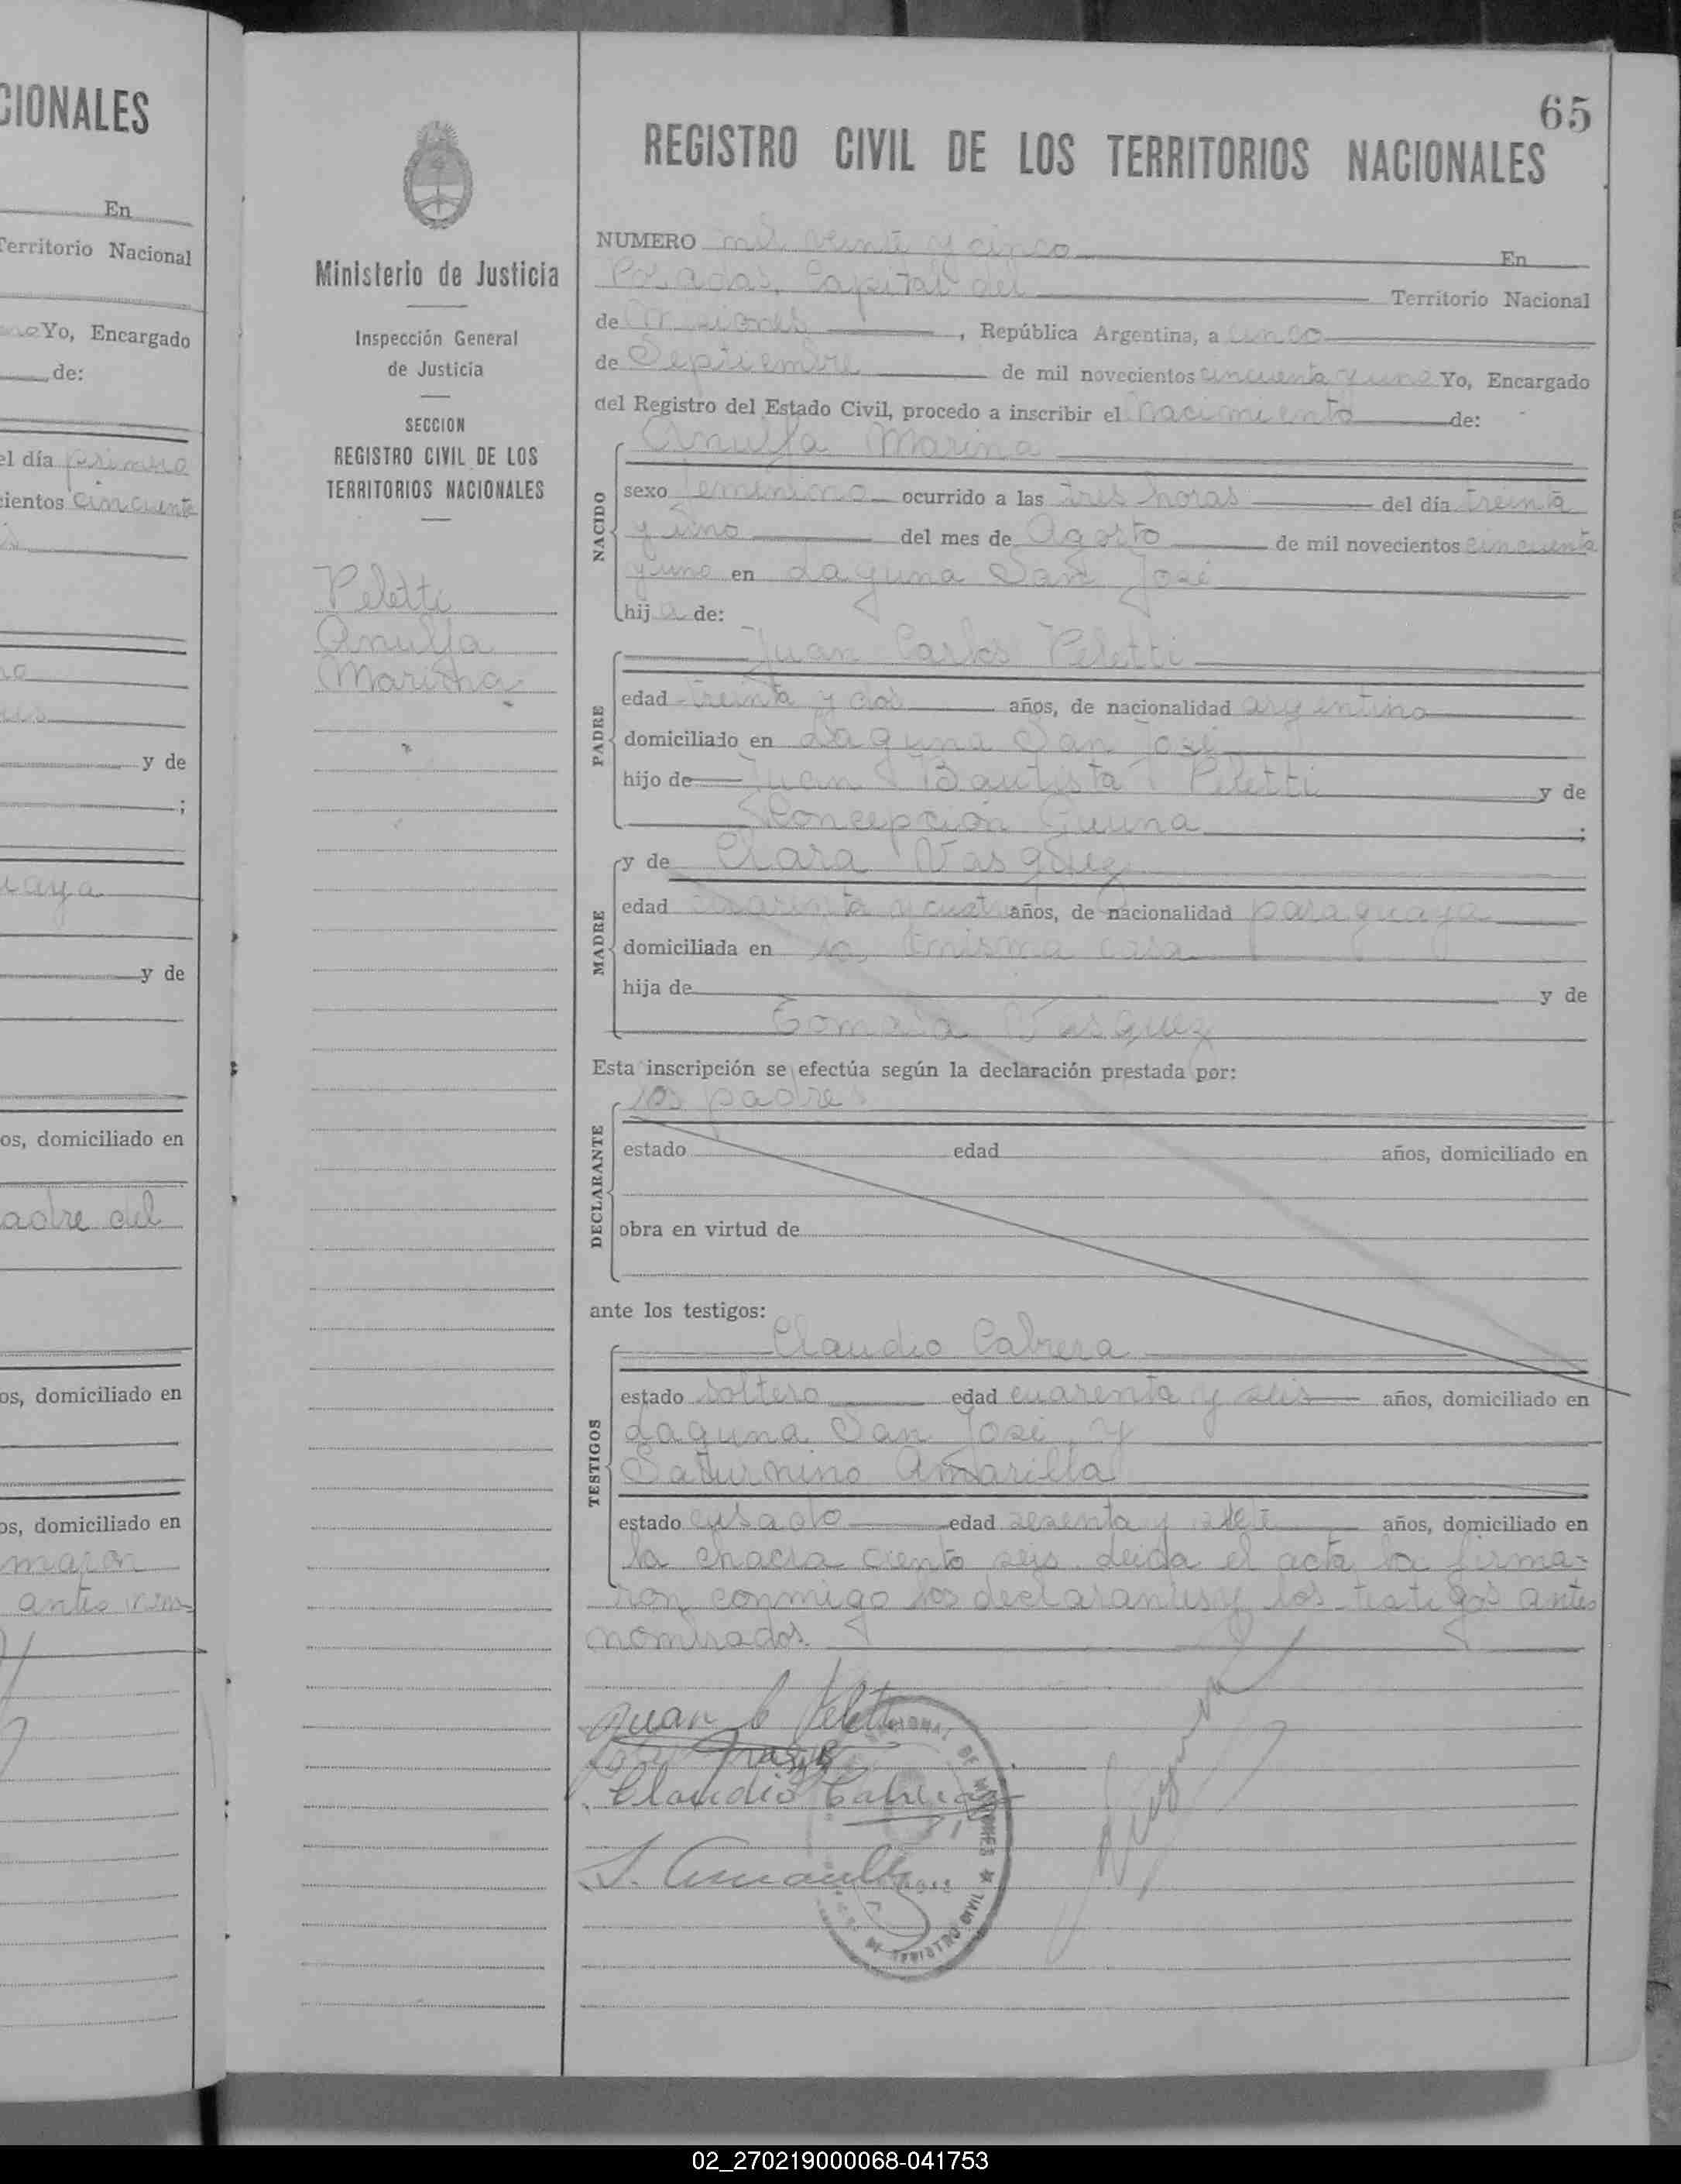 CIONALES
En
Territorio Nacional
Yo, Encargado
de:
el día primero
cientos cincuenta
y de
;
uaya
y de
os, domiciliado en
adre del
os, domiciliado en
os, domiciliado en
antes nom
Ministerio de Justicia
Inspección General
de Justicia
SECCION
REGISTRO CIVIL DE LOS
TERRITORIOS NACIONALES
Peletti
Anulfa
Marina
65
REGISTRO CIVIL DE LOS TERRITORIOS NACIONALES
NUMERO mil veinte y cinco En
Posadas, Capital del Territorio Nacional
de Misiones, República Argentina, a cinco
de Septiembre de mil novecientos cincuenta y uno Yo, Encargado
del Registro del Estado Civil, procedo a inscribir el nacimiento de:
Anulfa Marina
NACIDO
sexo femenino ocurrido a las tres horas del día treinta
y uno del mes de Agosto de mil novecientos cincuenta
y uno en Laguna San José
hija de:
Juan Carlos Peletti
PADRE
edad treinta y dos años, de nacionalidad argentino
domiciliado en Laguna San José
hijo de Juan Bautista Peletti y de
Concepción ;
y de Clara Vasquez
MADRE
edad cuarenta y cuatro años, de nacionalidad paraguaya
domiciliada en la misma casa
hija de y de
Tomasa Vasquez
Esta inscripción se efectúa según la declaración prestada por:
los padres
DECLARANTE
estado edad años, domiciliado en
obra en virtud de
ante los testigos:
Claudio Cabrera
TESTIGOS
estado soltero edad cuarenta y seis años, domiciliado en
Laguna San José, y
Saturnino Amarilla
estado casado edad sesenta y siete años, domiciliado en
la chacra ciento seis. Leida el acta la firma-
ron conmigo los declarantes y los testigos antes
nombrados.
Juan C Peletti
Claudio Cabrera
S. Amarilla
02_270219000068-041753